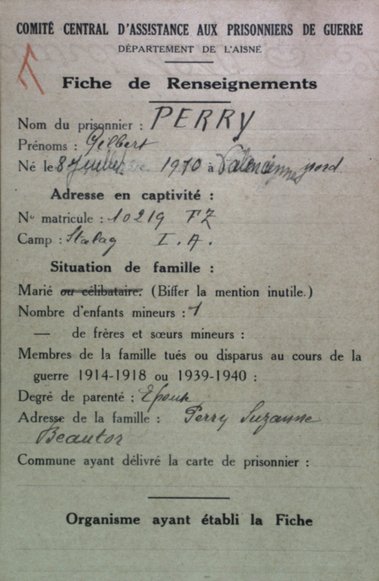 COMITÉ CENTRAL D'ASSISTANCE AUX PRISONNIERS DE GUERRE
DÉPARTEMENT DE L'AISNE
Fiche de Renseignements
Nom du prisonnier : PERRY
Prénoms : Gilbert
Né le 8 Juillet 1910 à Valenciennes nord
Adresse en captivité :
N° matricule : 10219 FZ
Camp : Stalag I.A.
Situation de famille :
Marié ou célibataire. (Biffer la mention inutile.)
Nombre d'enfants mineurs : 1
— de frères et sœurs mineurs :
Membres de la famille tués ou disparus au cours de la
guerre 1914-1918 ou 1939-1940 :
Degré de parenté : Epoux
Adresse de la famille : Perry Suzanne
Beautor
Commune ayant délivré la carte de prisonnier :
Organisme ayant établi la Fiche